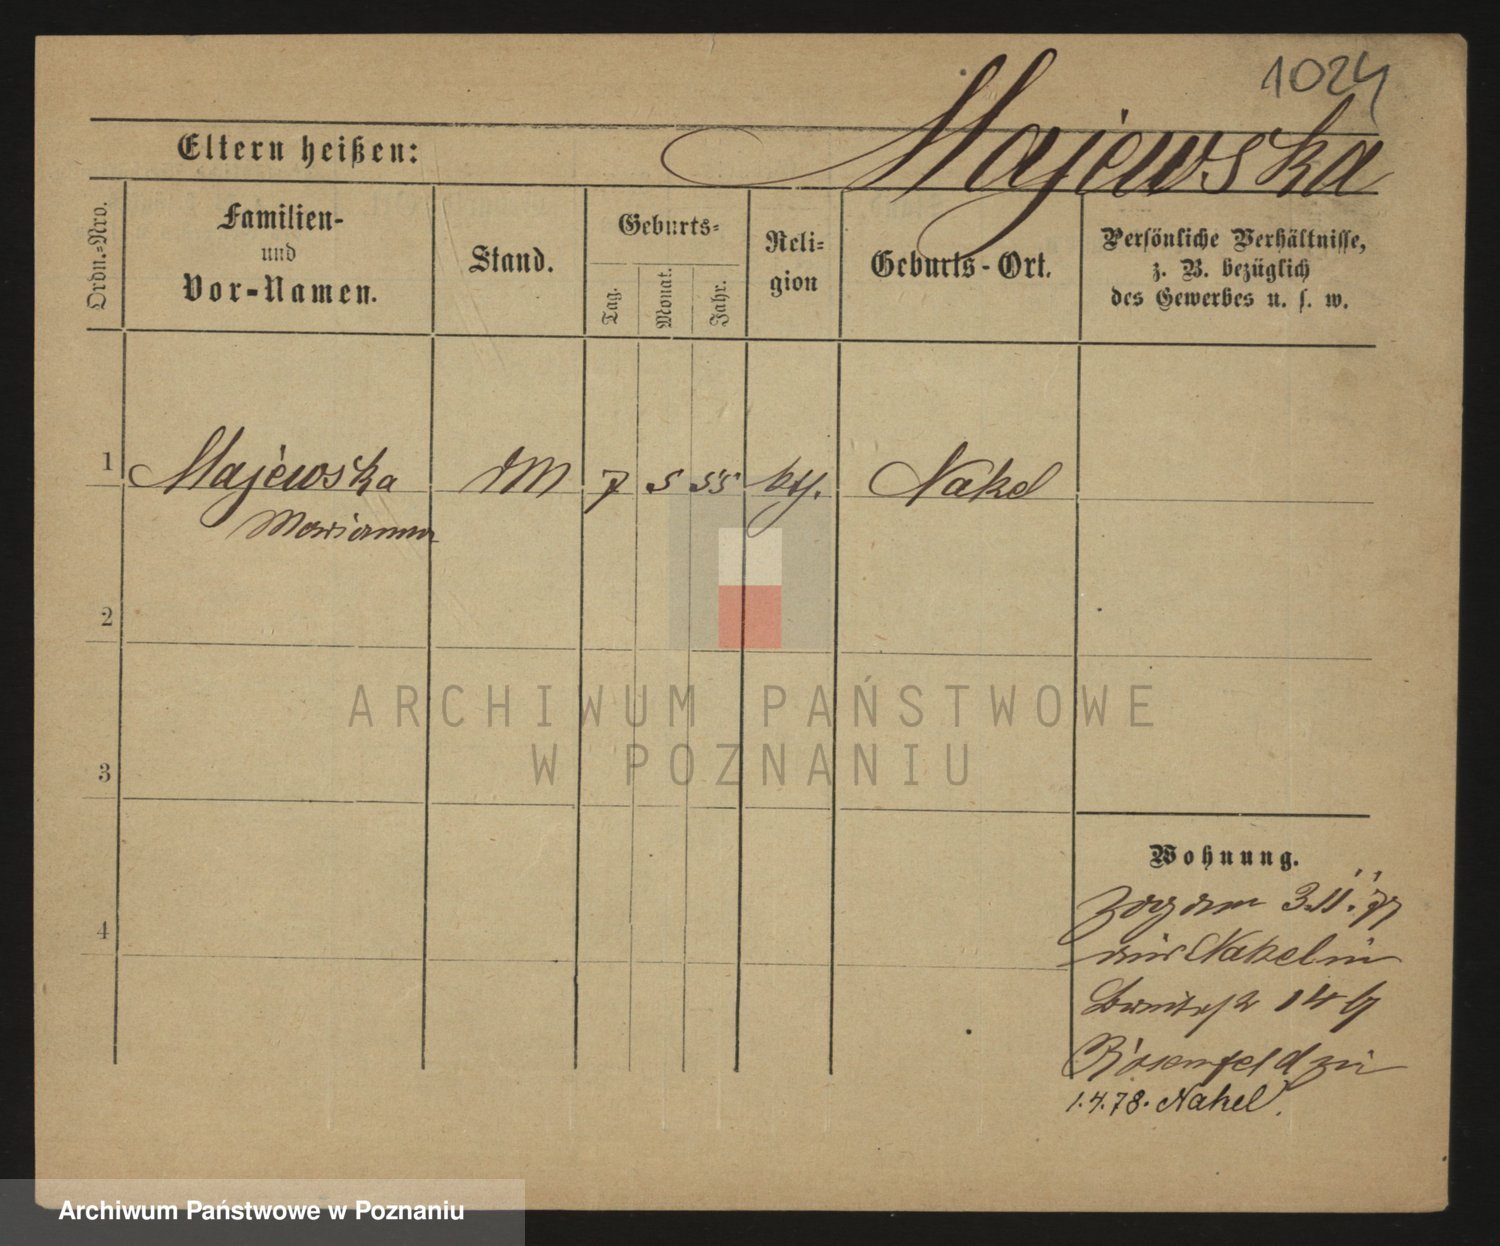 1024
Majewska
Eltern heißen:
Ordn.-Nro.
Familien-
und
Vor-Namen.
Stand.
Geburts-
Tag.
Monat.
Jahr.
Reli-
gion
Geburts-Ort.
Persönliche Verhältnisse,
z. B. bezüglich
des Gewerbes u. s. w.
1
Majewska
Marianna
DM
7
5
55
kth.
Nakel
2
3
4
ARCHIWUM PAŃSTWOWE
W POZNANIU
Wohnung.
Zog am 3.11.77
aus Nakel in
Breitestr 14 b
Rosenfeld zu
1.4.78. Nakel.
Archiwum Państwowe w Poznaniu